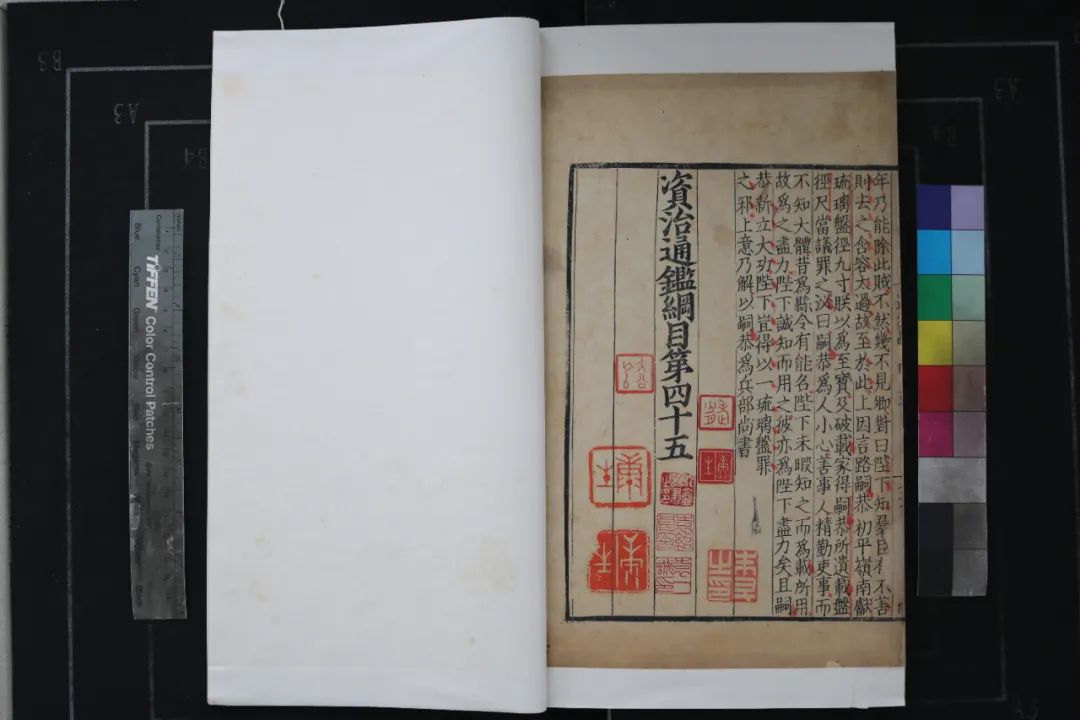 年乃能除此賊不然幾不見卿對曰陛下知羣臣有不善
則去之含容太過故至於此上因言路嗣恭初平嶺南獻
琉璃盤徑九寸朕以爲至寶及破載家得嗣恭所遺載盤
徑尺當議罪之泌曰嗣恭爲人小心善事人精勤吏事而
不知大體昔爲縣令有能名陛下未暇知之而爲載所用
故爲之盡力陛下誠知而用之彼亦爲陛下盡力矣且嗣
恭新立大功陛下豈得以一琉璃盤罪
之邪上意乃解以嗣恭爲兵部尚書
資治通鑑綱目第四十五
TIFFEN Color Control Patches
Blue
Cyan
Green
B3
A3
B4
A3
B4